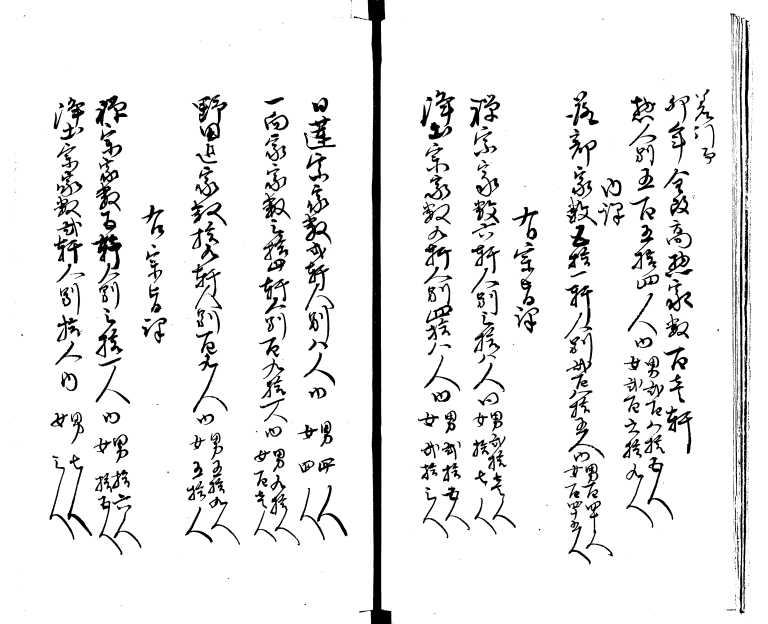 卯年今改高惣家数百壱軒
惣人別五百五拾四人内男弐百八拾五人女弐百六拾九人
内訳
落部家数五拾一軒人別弐百八拾五人内男百四十人女百四十五人
右宗旨訳
禅宗家数六軒人別三拾八人内男弐拾壱人女拾七人
浄土宗家数九軒人別四拾八人内男弐拾五人女弐拾三人
日蓮宗家数弐軒人別八人内男四人女四人
一向宗家数三拾四軒人別百九拾一人内男九拾人女百壱人
野田追家数拾九軒人別百九人内男五拾九人女五拾人
右宗旨訳
禅宗家数百軒人別三拾一人内男拾六人女拾五人
浄土宗家数弐軒人別拾人内男七人女三人